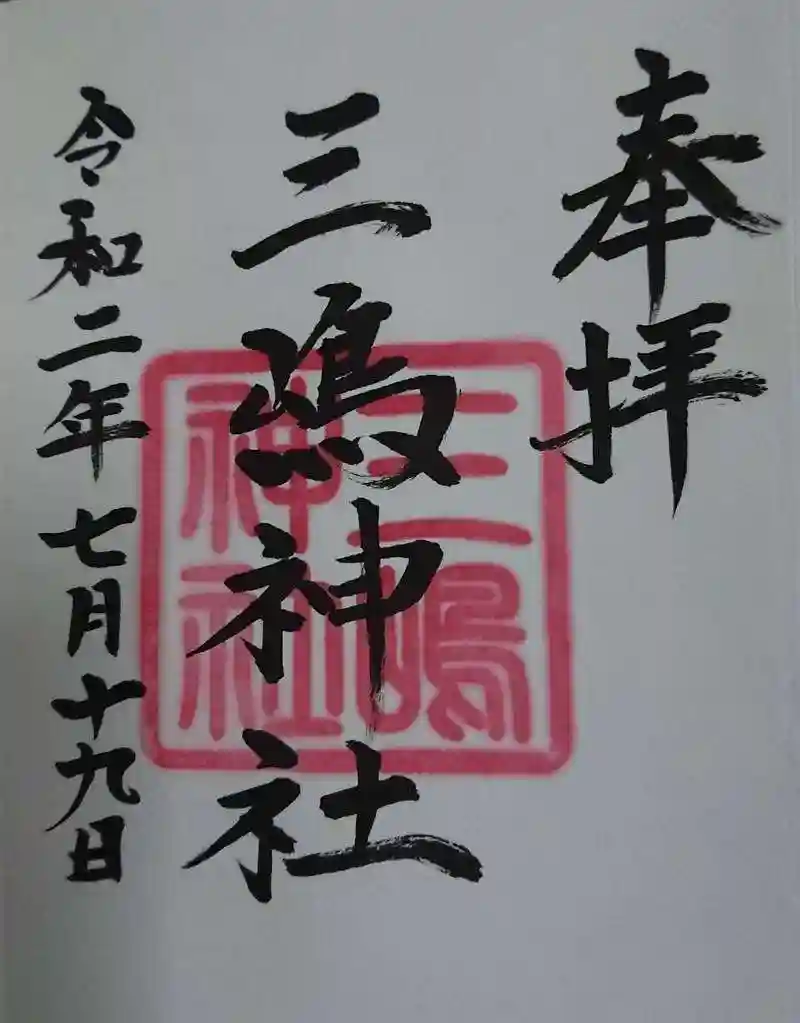 奉拝
三嶋神社
令和二年七月十九日
三嶋
神社